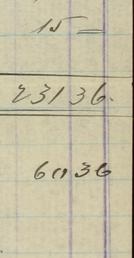 15 =
23136.
6036